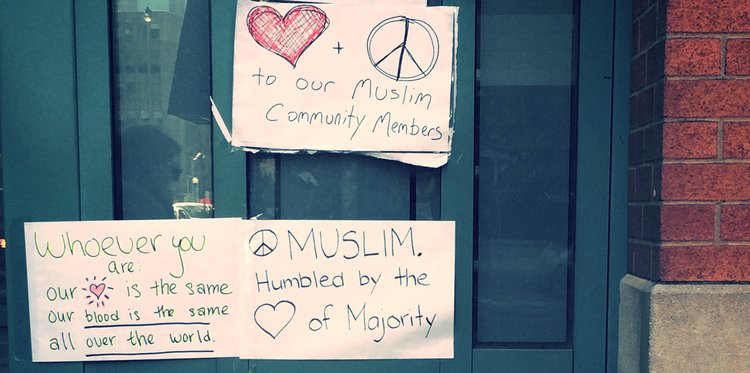 +
to our Muslim
Community Members
Whoever you
are.
our is the same
our blood is the same
all over the world.
MUSLIM.
Humbled by the
of Majority